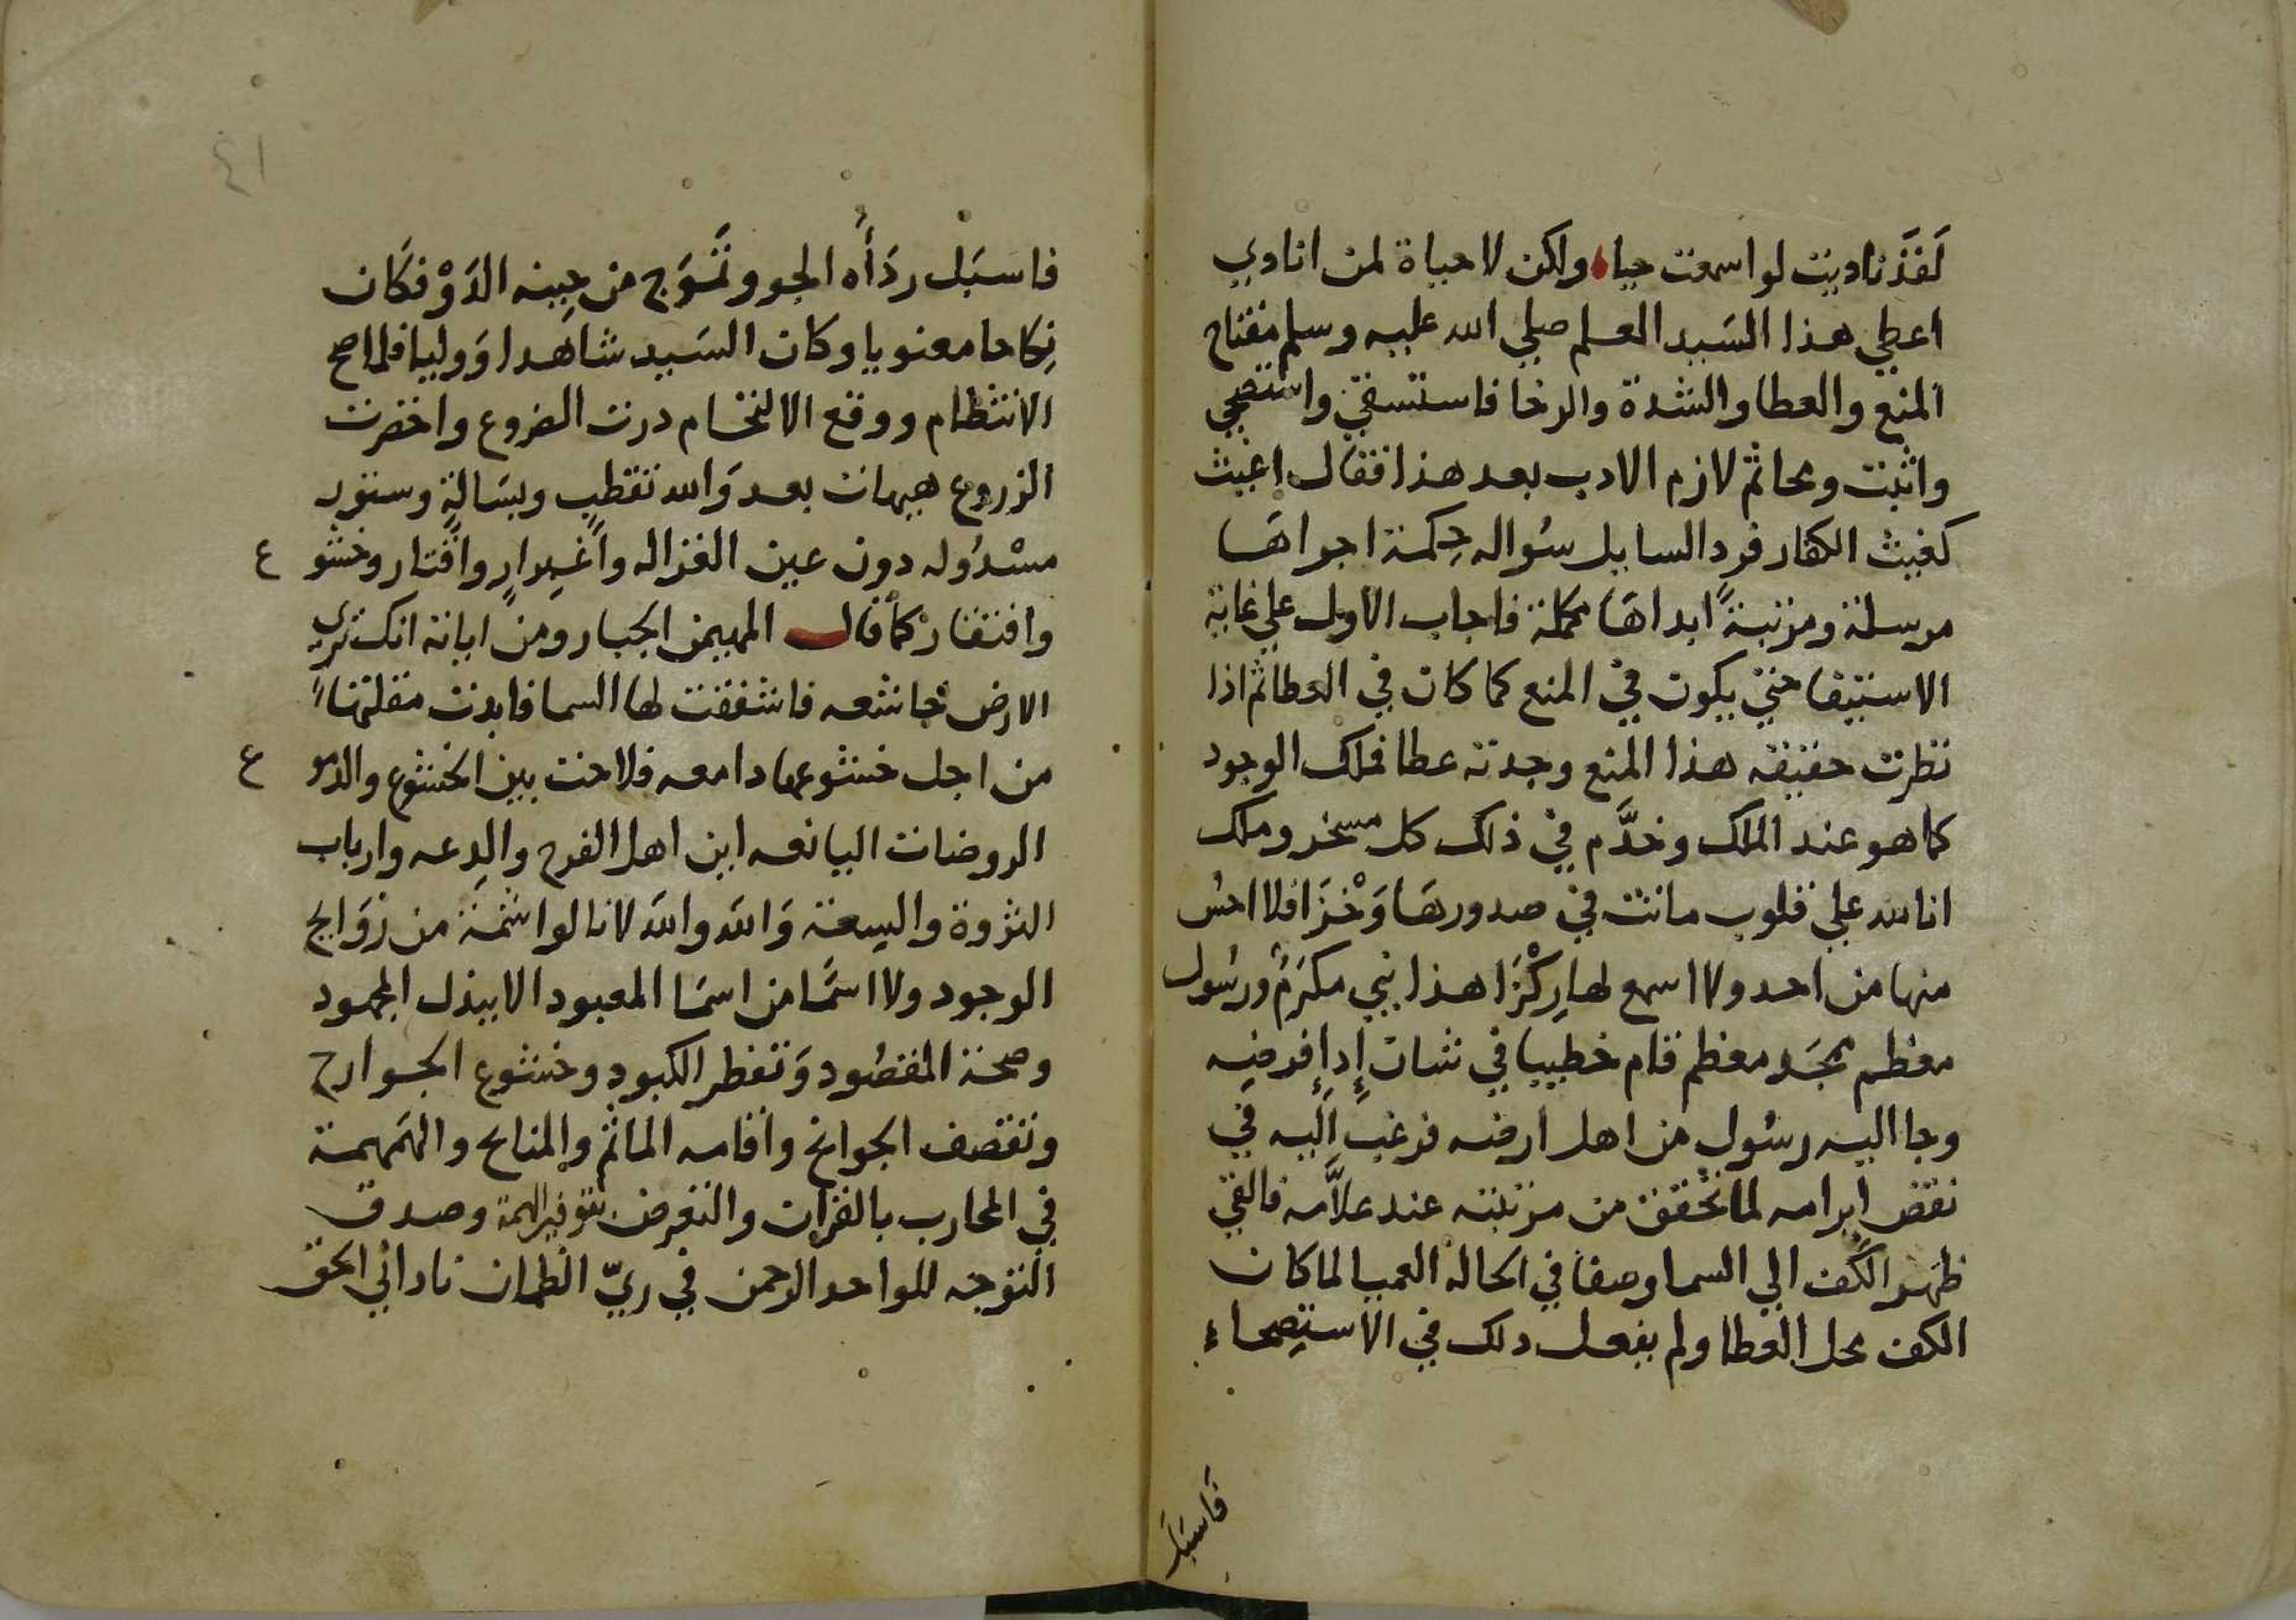 لَقَد ناديت لو اسمعت حيا ولكن لا حياة لمن انادي
اعطي هذا السَيد المعلم صلي الله عليه وسلم مفتاح
المنع والعطا والشدة والرخا فاستسقي واستصحي
واثبت ومحا ثم لازم الادب بعد هذا فقال اغيث
كغيث الكفار فرد السايل سُواله حِكمة اجراهَا
مرسلة ومرتبةً ابداهَا مكملة فاجاب الاول علي غاية
الاستيفا حتي يكون في المنع كما كان في العطا ثم اذا
نظرت حقيقه هذا المنع وجدته عطا فملك الوجود
كما هو عند الملك وخدَّم في ذلك كل مسخر وملك
انا لله علي قلوب ماتت في صدورهَا وَخْزَا فلا احسُ
منها من احد ولا اسمع لها رِكْزَا هذا نبي مكرَمُ ورسُول
معظم ممجَد معظم قام خطيبا في شان إدا فرضِه
وجا اليه رسُول من اهل ارضه فرغب اليه في
نقض ابرامه لما تحقق من مرتبته عند علاَّمه فالقي
ظهر الكَف الي السما وصفا في الحالة العميا لما كان
الكف محل العطا ولم يفعل دلك في الاستِصحاء
فاسبَل
٤١
فاسبَل ردَأه الجو وتَزَوَج من حِينه الدَوْ فكان
نِكاحا معنويا وكان السَيد شاهدا وَوليا فلما صح
الانتظام ووقع الالتحام درت الضروع واخضرت
الزروع هيهات بعد وَالله تقطب وبسَالةٍ وستور
مسْدُوله دون عين الغزاله واغبِرارٍ واقتار وخشو ع
وافتقار كما قال المهيمن الجبار ومن اياته انك تري
الارض خاشعه فاشفقت لها السما فابدت مقلتها
من اجل خشوعها دامعه فلاحت بين الخشوع والدمو ع
الروضات اليانعه اين اهل الفرح والدِعه وارباب
الثروة والسِعة وَالله والله لا نالوا شمة من رَوَايح
الوجود ولا اسمًا من اسمَا المعبود الا ببذل المجهود
وصحة المقصُود وَتفطر الكبود وخشوع الجوارح
وتقصف الجوانح واقامه الماتم والمنايح والهَمهمة
في المحارب بالقران والتعرض بتوفير الهمة وصدق
التوجه للواحد الرحمن في ريّ الظمان ناداني الحق